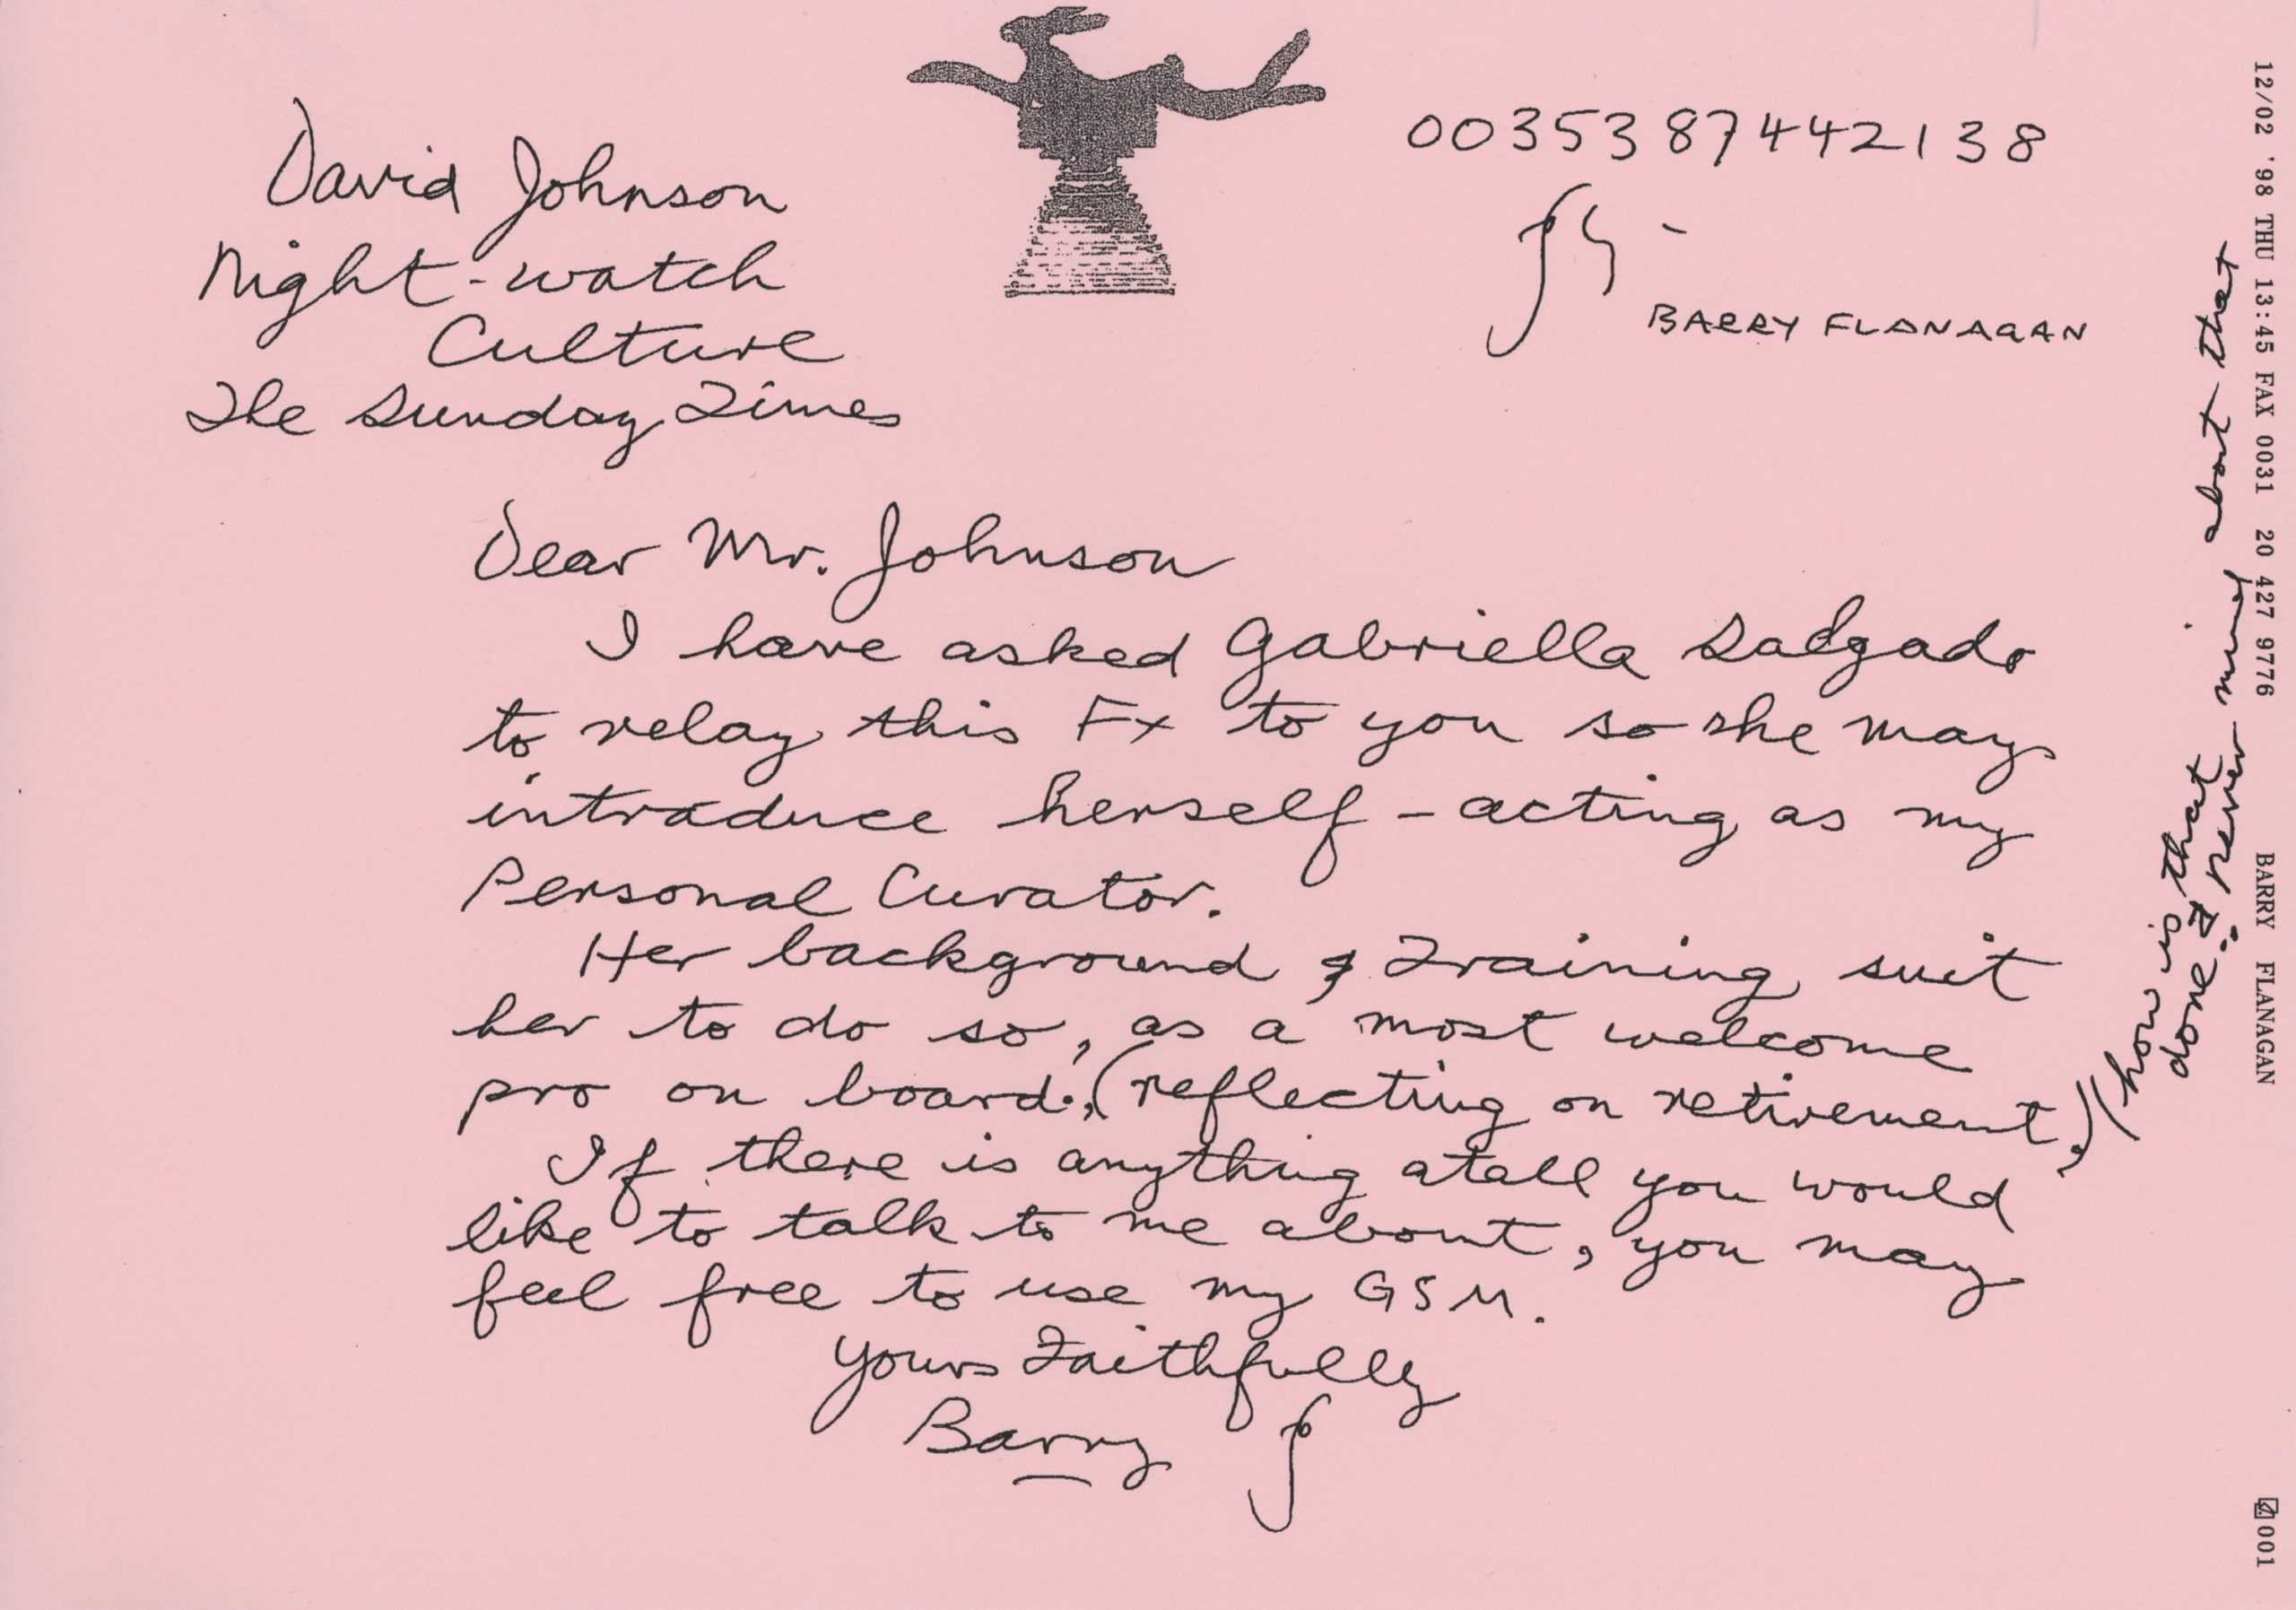 David Johnson
Night-watch
Culture
The Sunday Times
00353 87442138
BARRY FLANAGAN
Dear Mr. Johnson
I have asked Gabriella Salgado
to relay this Fx to you so she may
introduce herself - acting as my
Personal Curator.
Her background & Training suit
her to do so, as a most welcome
pro on board., (reflecting on retirement,)
(how is that
done? never mind about that
If there is anything atall you would
like to talk to me about, you may
feel free to use my GSM.
Yours Faithfully
Barry
12/02 '98 THU 13:45 FAX 0031 20 427 9776 BARRY FLANAGAN 001